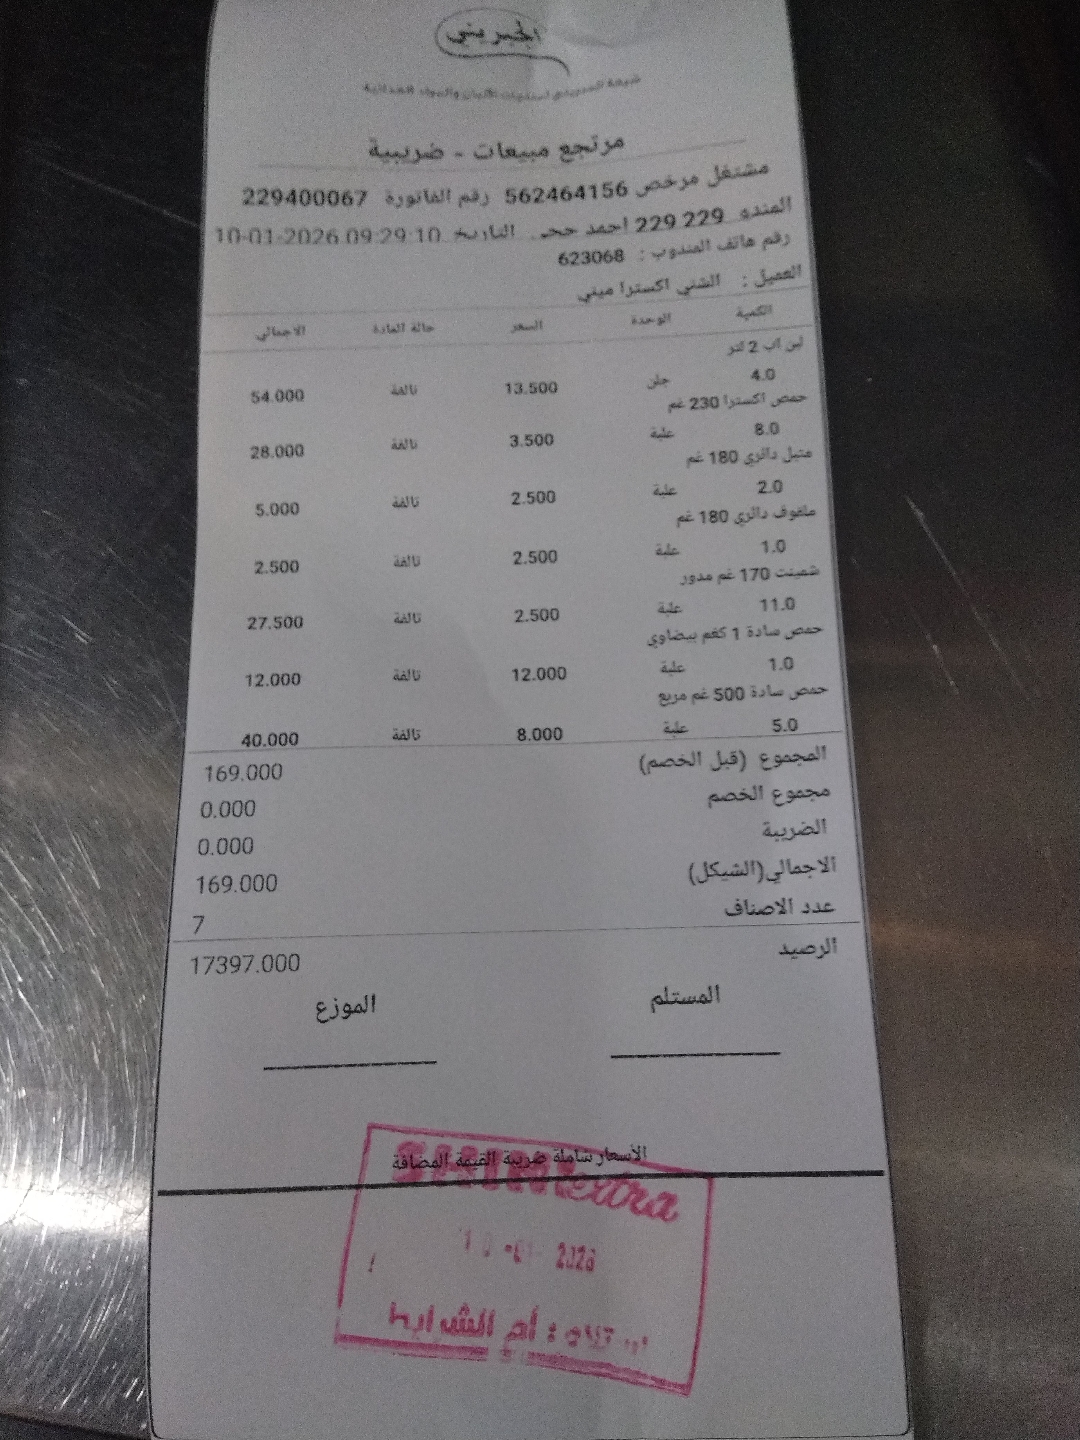 الجبريني
شركة الجبريني لمنتجات الألبان والمواد الغذائية
مرتجع مبيعات - ضريبية
مشتغل مرخص 562464156 رقم الفاتورة 229400067
المندو 229 229 احمد حجي التاريخ 10-01-2026 09:29:10
رقم هاتف المندوب : 623068
العميل : الشني اكسترا ميني
الكمية الوحدة السعر حالة المادة الاجمالي
لبن اب 2 لتر
4.0 جلن 13.500 تالفة 54.000
حمص اكسترا 230 غم
8.0 علبة 3.500 تالفة 28.000
متبل دائري 180 غم
2.0 علبة 2.500 تالفة 5.000
ملفوف دائري 180 غم
1.0 علبة 2.500 تالفة 2.500
شمينت 170 غم مدور
11.0 علبة 2.500 تالفة 27.500
حمص سادة 1 كغم بيضاوي
1.0 علبة 12.000 تالفة 12.000
حمص سادة 500 غم مربع
5.0 علبة 8.000 تالفة 40.000
المجموع (قبل الخصم) 169.000
مجموع الخصم 0.000
الضريبة 0.000
الاجمالي(الشيكل) 169.000
عدد الاصناف 7
الرصيد 17397.000
المستلم الموزع
الأسعار شاملة ضريبة القيمة المضافة
extra
2026
أم الشرايط